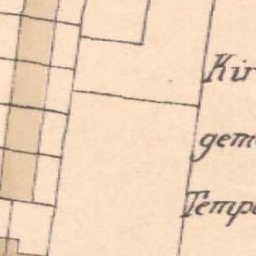 Kir
gem
Temp